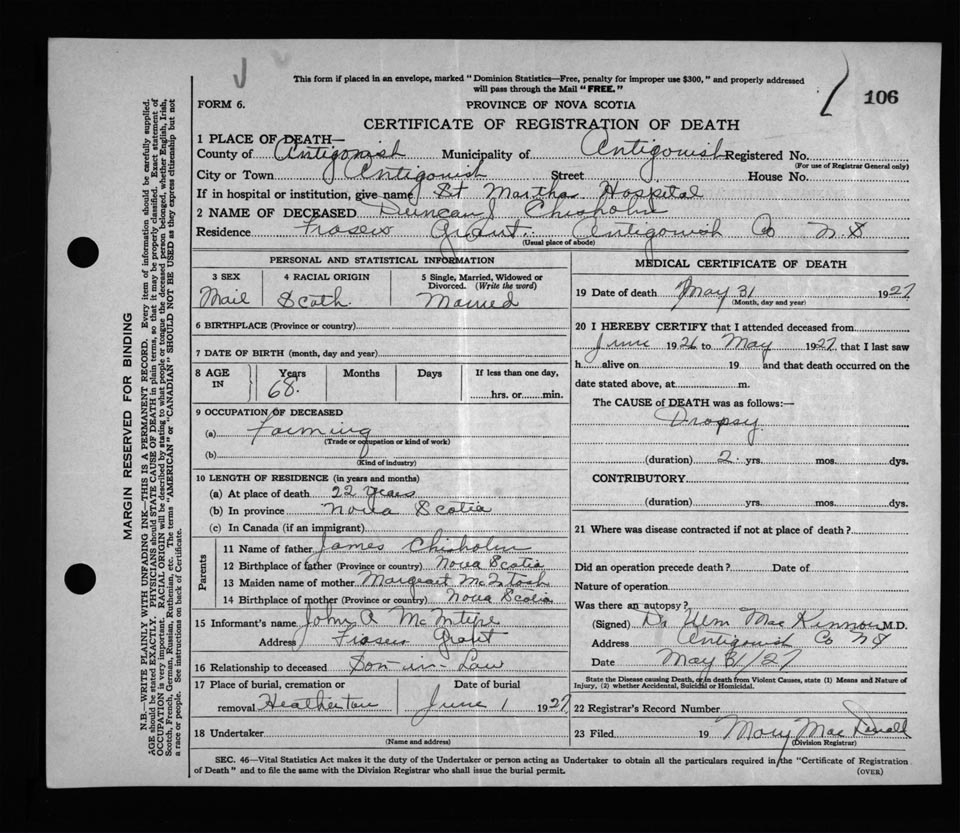 This form if placed in an envelope, marked "Dominion Statistics—Free, penalty for improper use $300," and properly addressed
will pass through the Mail "FREE."
106
FORM 6.
PROVINCE OF NOVA SCOTIA
CERTIFICATE OF REGISTRATION OF DEATH
1 PLACE OF DEATH—
County of Antigonish Municipality of Antigonish Registered No.
(For use of Registrar General only)
City or Town Antigonish Street House No.
If in hospital or institution, give name St Martha Hospital
2 NAME OF DECEASED Duncan J Chisholm
Residence Frasers Grant. Antigonish Co N.S
(Usual place of abode)
PERSONAL AND STATISTICAL INFORMATION
3 SEX 4 RACIAL ORIGIN 5 Single, Married, Widowed or
Divorced. (Write the word)
Mail Scoth. Married
6 BIRTHPLACE (Province or country)
7 DATE OF BIRTH (month, day and year)
8 AGE IN Years Months Days If less than one day,
68. hrs. or min.
9 OCCUPATION OF DECEASED
(a) Farming
(Trade or occupation or kind of work)
(b)
(Kind of industry)
10 LENGTH OF RESIDENCE (in years and months)
(a) At place of death 22 years
(b) In province Nova Scotia
(c) In Canada (if an immigrant)
Parents
11 Name of father James Chisholm
12 Birthplace of father (Province or country) Nova Scotia
13 Maiden name of mother Margeart McIntosh
14 Birthplace of mother (Province or country) Nova Scotia
15 Informant's name John A McIntyre
Address Frasers Grant
16 Relationship to deceased Son-in-Law
17 Place of burial, cremation or Date of burial
removal Heatherton June 1 1927
18 Undertaker
(Name and address)
MEDICAL CERTIFICATE OF DEATH
19 Date of death May 31 1927
(Month, day and year)
20 I HEREBY CERTIFY that I attended deceased from
June 1926 to May 1927, that I last saw
h alive on 19 and that death occurred on the
date stated above, at m.
The CAUSE of DEATH was as follows:—
Dropsy.
(duration) 2 yrs. mos. dys.
CONTRIBUTORY
(duration) yrs. mos. dys.
21 Where was disease contracted if not at place of death?
Did an operation precede death? Date of
Nature of operation
Was there an autopsy?
(Signed) Dr Wm MacKinnon M.D.
Address Antigonish Co NS
Date May 31/27
State the Disease causing Death, or in death from Violent Causes, state (1) Means and Nature of
Injury, (2) whether Accidental, Suicidal or Homicidal.
22 Registrar's Record Number
23 Filed 19 Mary Mac
(Division Registrar)
SEC. 46—Vital Statistics Act makes it the duty of the Undertaker or person acting as Undertaker to obtain all the particulars required in the "Certificate of Registration
of Death" and to file the same with the Division Registrar who shall issue the burial permit.
(OVER)
MARGIN RESERVED FOR BINDING
N.B.—WRITE PLAINLY WITH UNFADING INK—THIS IS A PERMANENT RECORD. Every item of information should be carefully supplied.
AGE should be stated EXACTLY. PHYSICIANS should STATE CAUSE OF DEATH in plain terms, so that it may be properly classified. Exact statement of
OCCUPATION is very important. RACIAL ORIGIN will be described by stating to what people or tongue the deceased person belonged, whether English, Irish,
Scotch, French, German, Russian, Ruthenian, etc. The terms "AMERICAN" or "CANADIAN" SHOULD NOT BE USED as they express citizenship but not
a race or people. See instructions on back of Certificate.